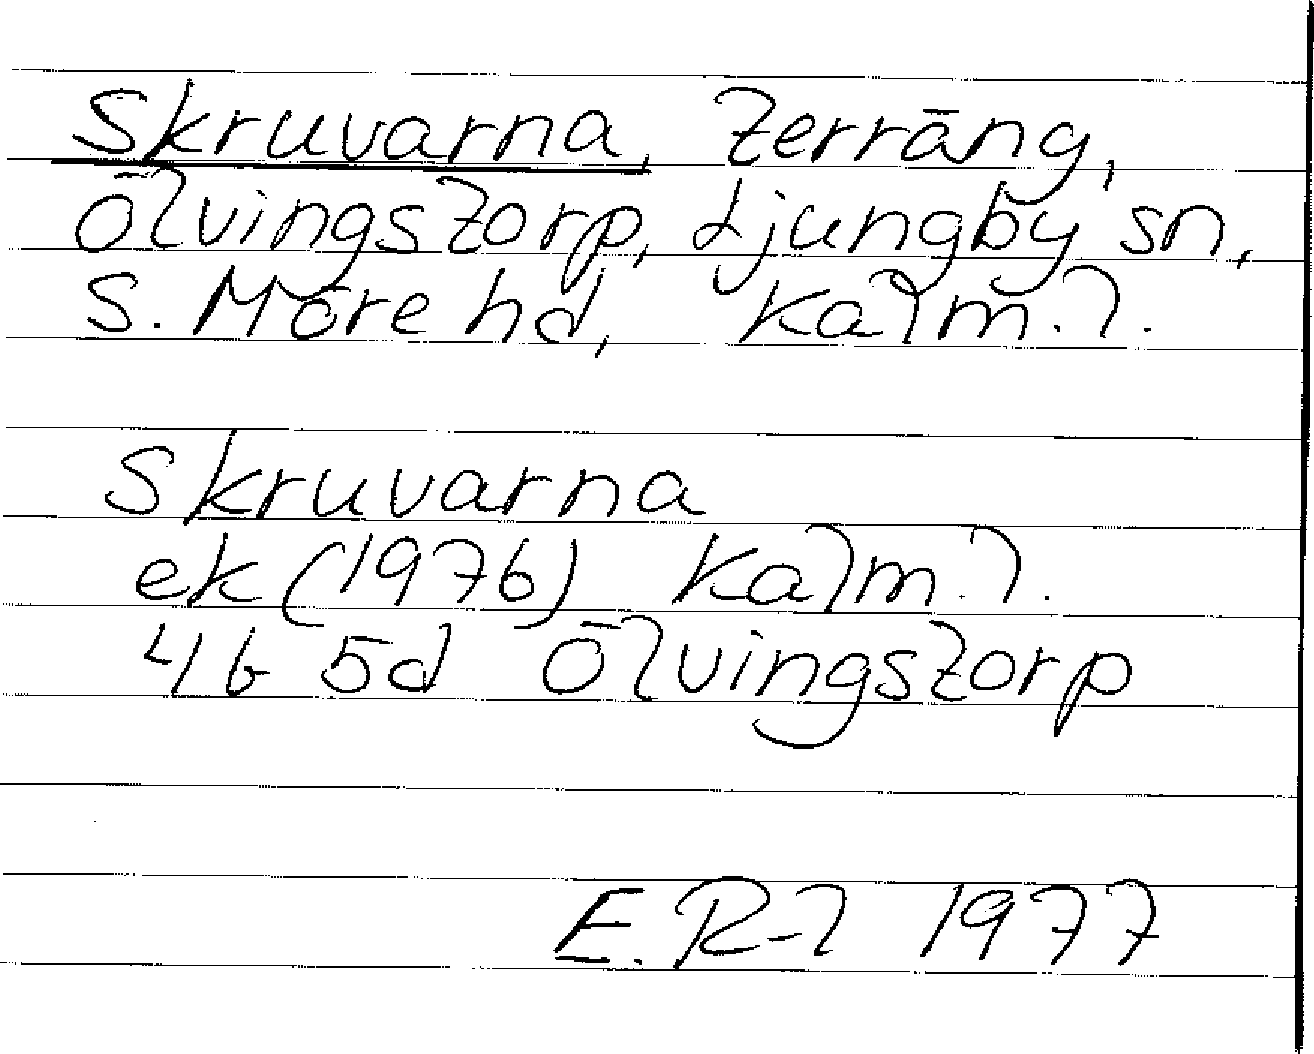 Skruvarna, terräng,
Ölvingstorp, Ljungby sn,
S. Möre hd, Kalm. l.
Skruvarna
ek (1976) Kalm. l.
4G 5d Ölvingstorp
E. R-l 1977